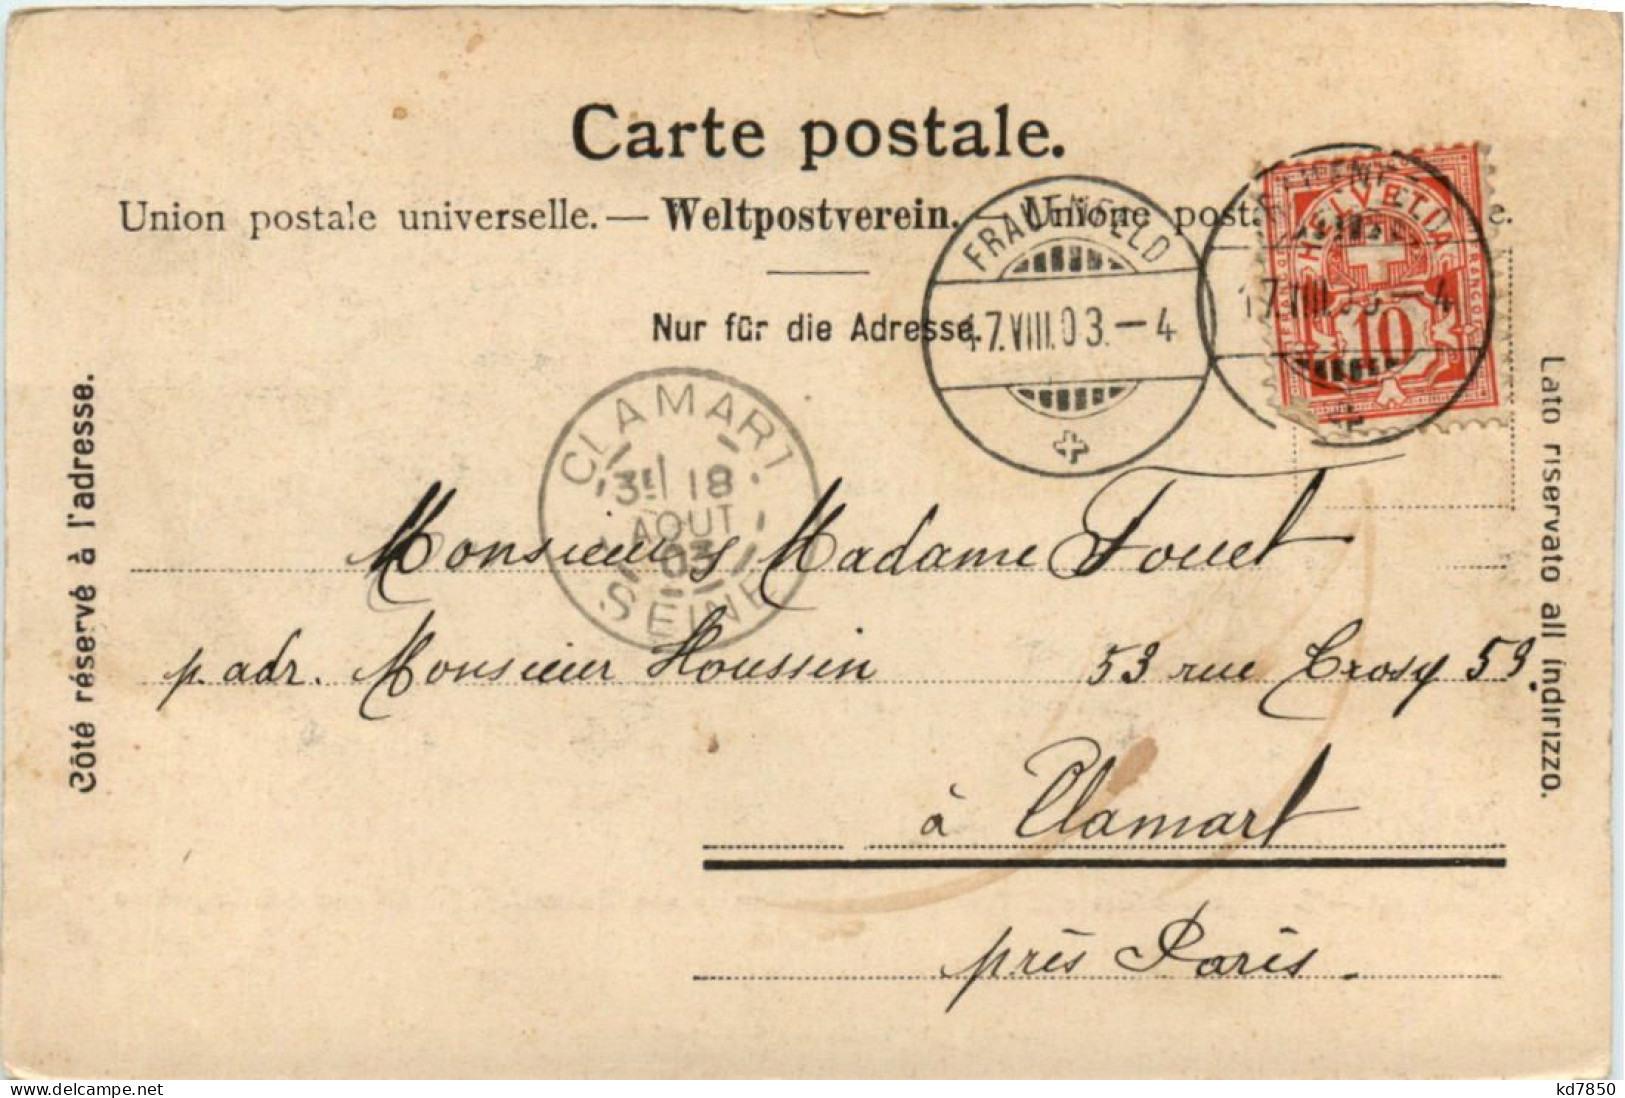 Carte postale.
Union postale universelle. — Weltpostverein. — Unione post. e.
Nur für die Adresse.
Côté réservé à l'adresse.
Lato riservato all indirizzo.
FRAUENFELD
17.VIII.03.–4
FRAUENFELD
17.VIII.03.–4
HELVETIA
FRANCO
FRANCO
10
CLAMART
3E 18
AOUT
03
SEINE
Monsieur & Madame Fouet
p. adr. Monsieur Houssin 53 rue Crosy 53.
à Clamart
près Paris.
delcampe.net
kd7850